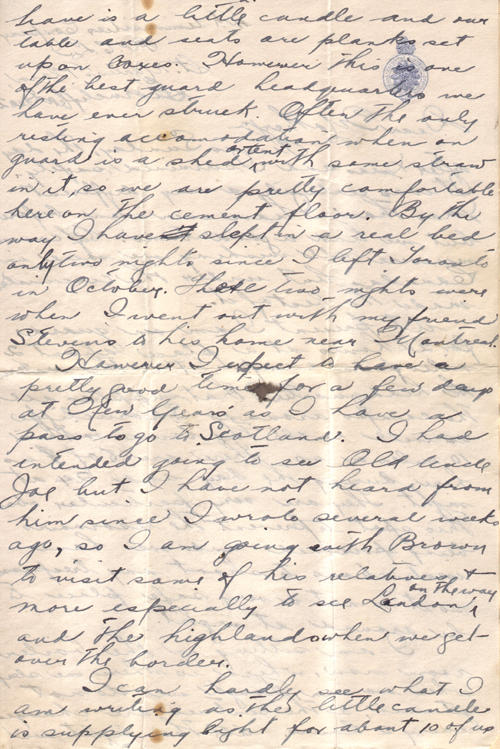 have is a little candle and our
table and seats are planks set
upon boxes. However this is one
of the best guard headquarters we
have ever struck. Often the only
resting accomodation when on
guard is a shed or tent, with some straw
in it, so we are pretty comfortable
here on the cement floor. By the
way I have slept in a real bed
only two nights since I left Toronto
in October. These two nights were
when I went out with my friend
Stevens to his home near Montreal.
However I expect to have a
pretty good time for a few days
at New Years' as I have a
pass to go to Scotland. I had
intended going to see Old Uncle
Joe but I have not heard from
him since I wrote several week
ago, so I am going with Brown
to visit some of his relatives &
more especially to see London, on the way
and the highlands when we get
over the border.
I can hardly see what I
am writing as the little candle
is supplying light for about 10 of us